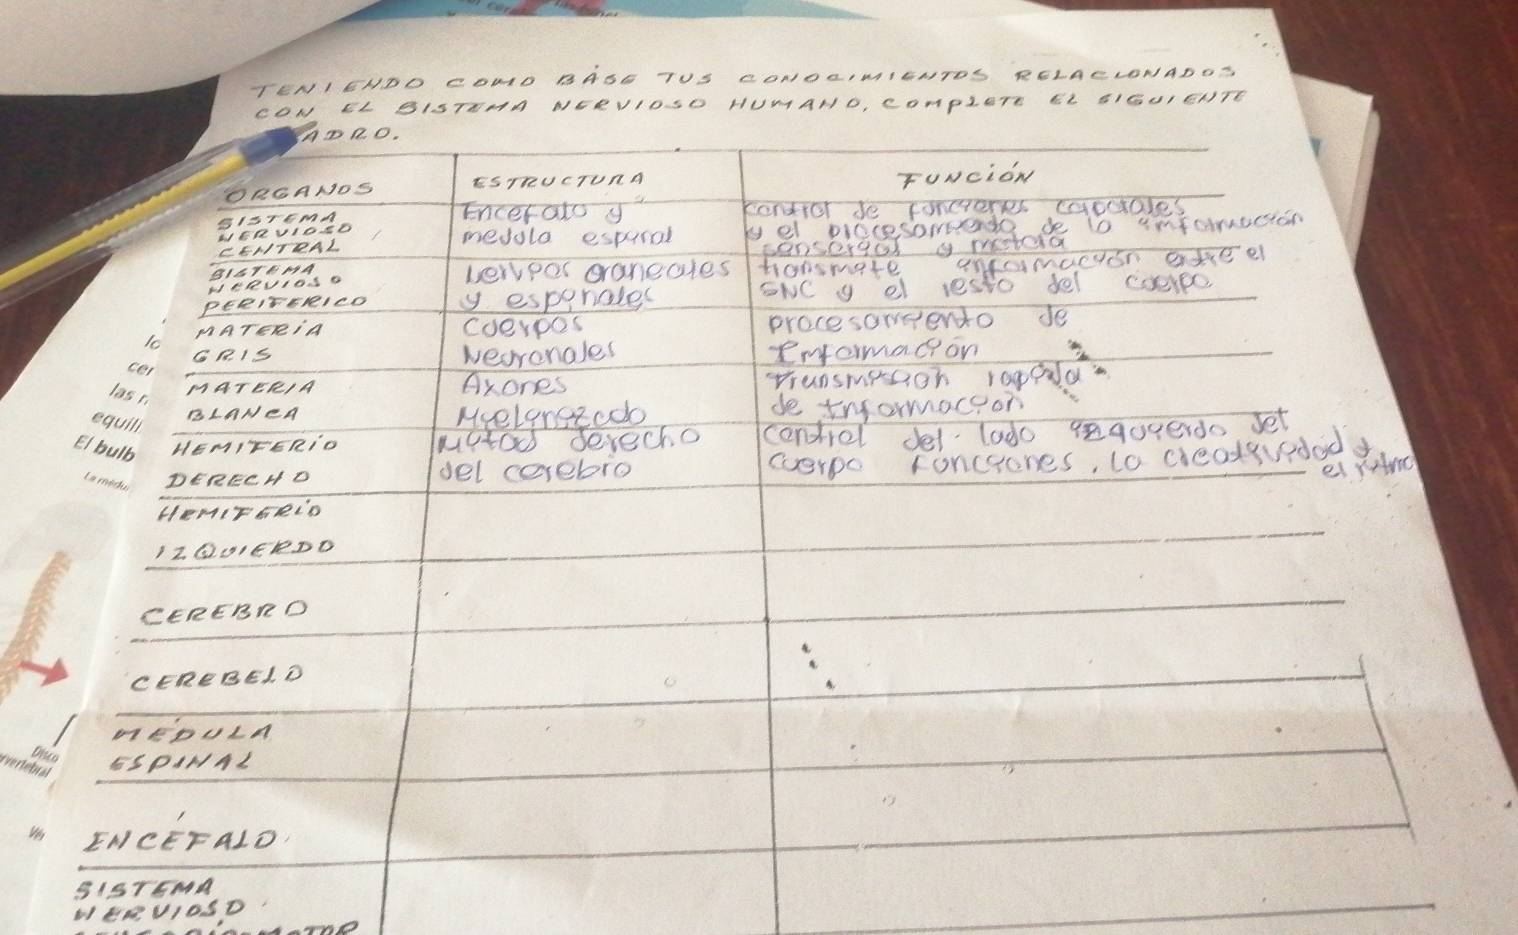 TENIENDO COMO BASE TUS CONOCIMIENTOS RELACIONADOS
CON EL SISTEMA NERVIOSO HUMANO, COMPLETE EL SIGUIENTE
ADRO.
ORGANOS ESTRUCTURA FUNCIÓN
SISTEMA
NERVIOSO
CENTRAL
Encefalo y
medola espinal
control de funciones corporales
y el procesamiento de la información
sensorial y motora
SISTEMA
NERVIOSO
PERIFERICO
craneales
y espinales
transmite información entre el
SNC y el resto del cuerpo
MATERIA
GRIS
Cuerpos
Neuronales
procesamiento de
información
MATERIA
BLANCA
Axones
transmision rapida
de información
HEMIFERIO
DERECHO
Mitad derecho
del cerebro
control del lado izquierdo del
cuerpo funciones, la creatividad y
el ritmo
HEMIFERIO
IZQUIERDO
CEREBRO
CEREBELO
MEDULA
ESPINAL
ENCEFALO
SISTEMA
NERVIOSO
lo
cer
las n
equili
El bulb
La médu
Disco
vertebral